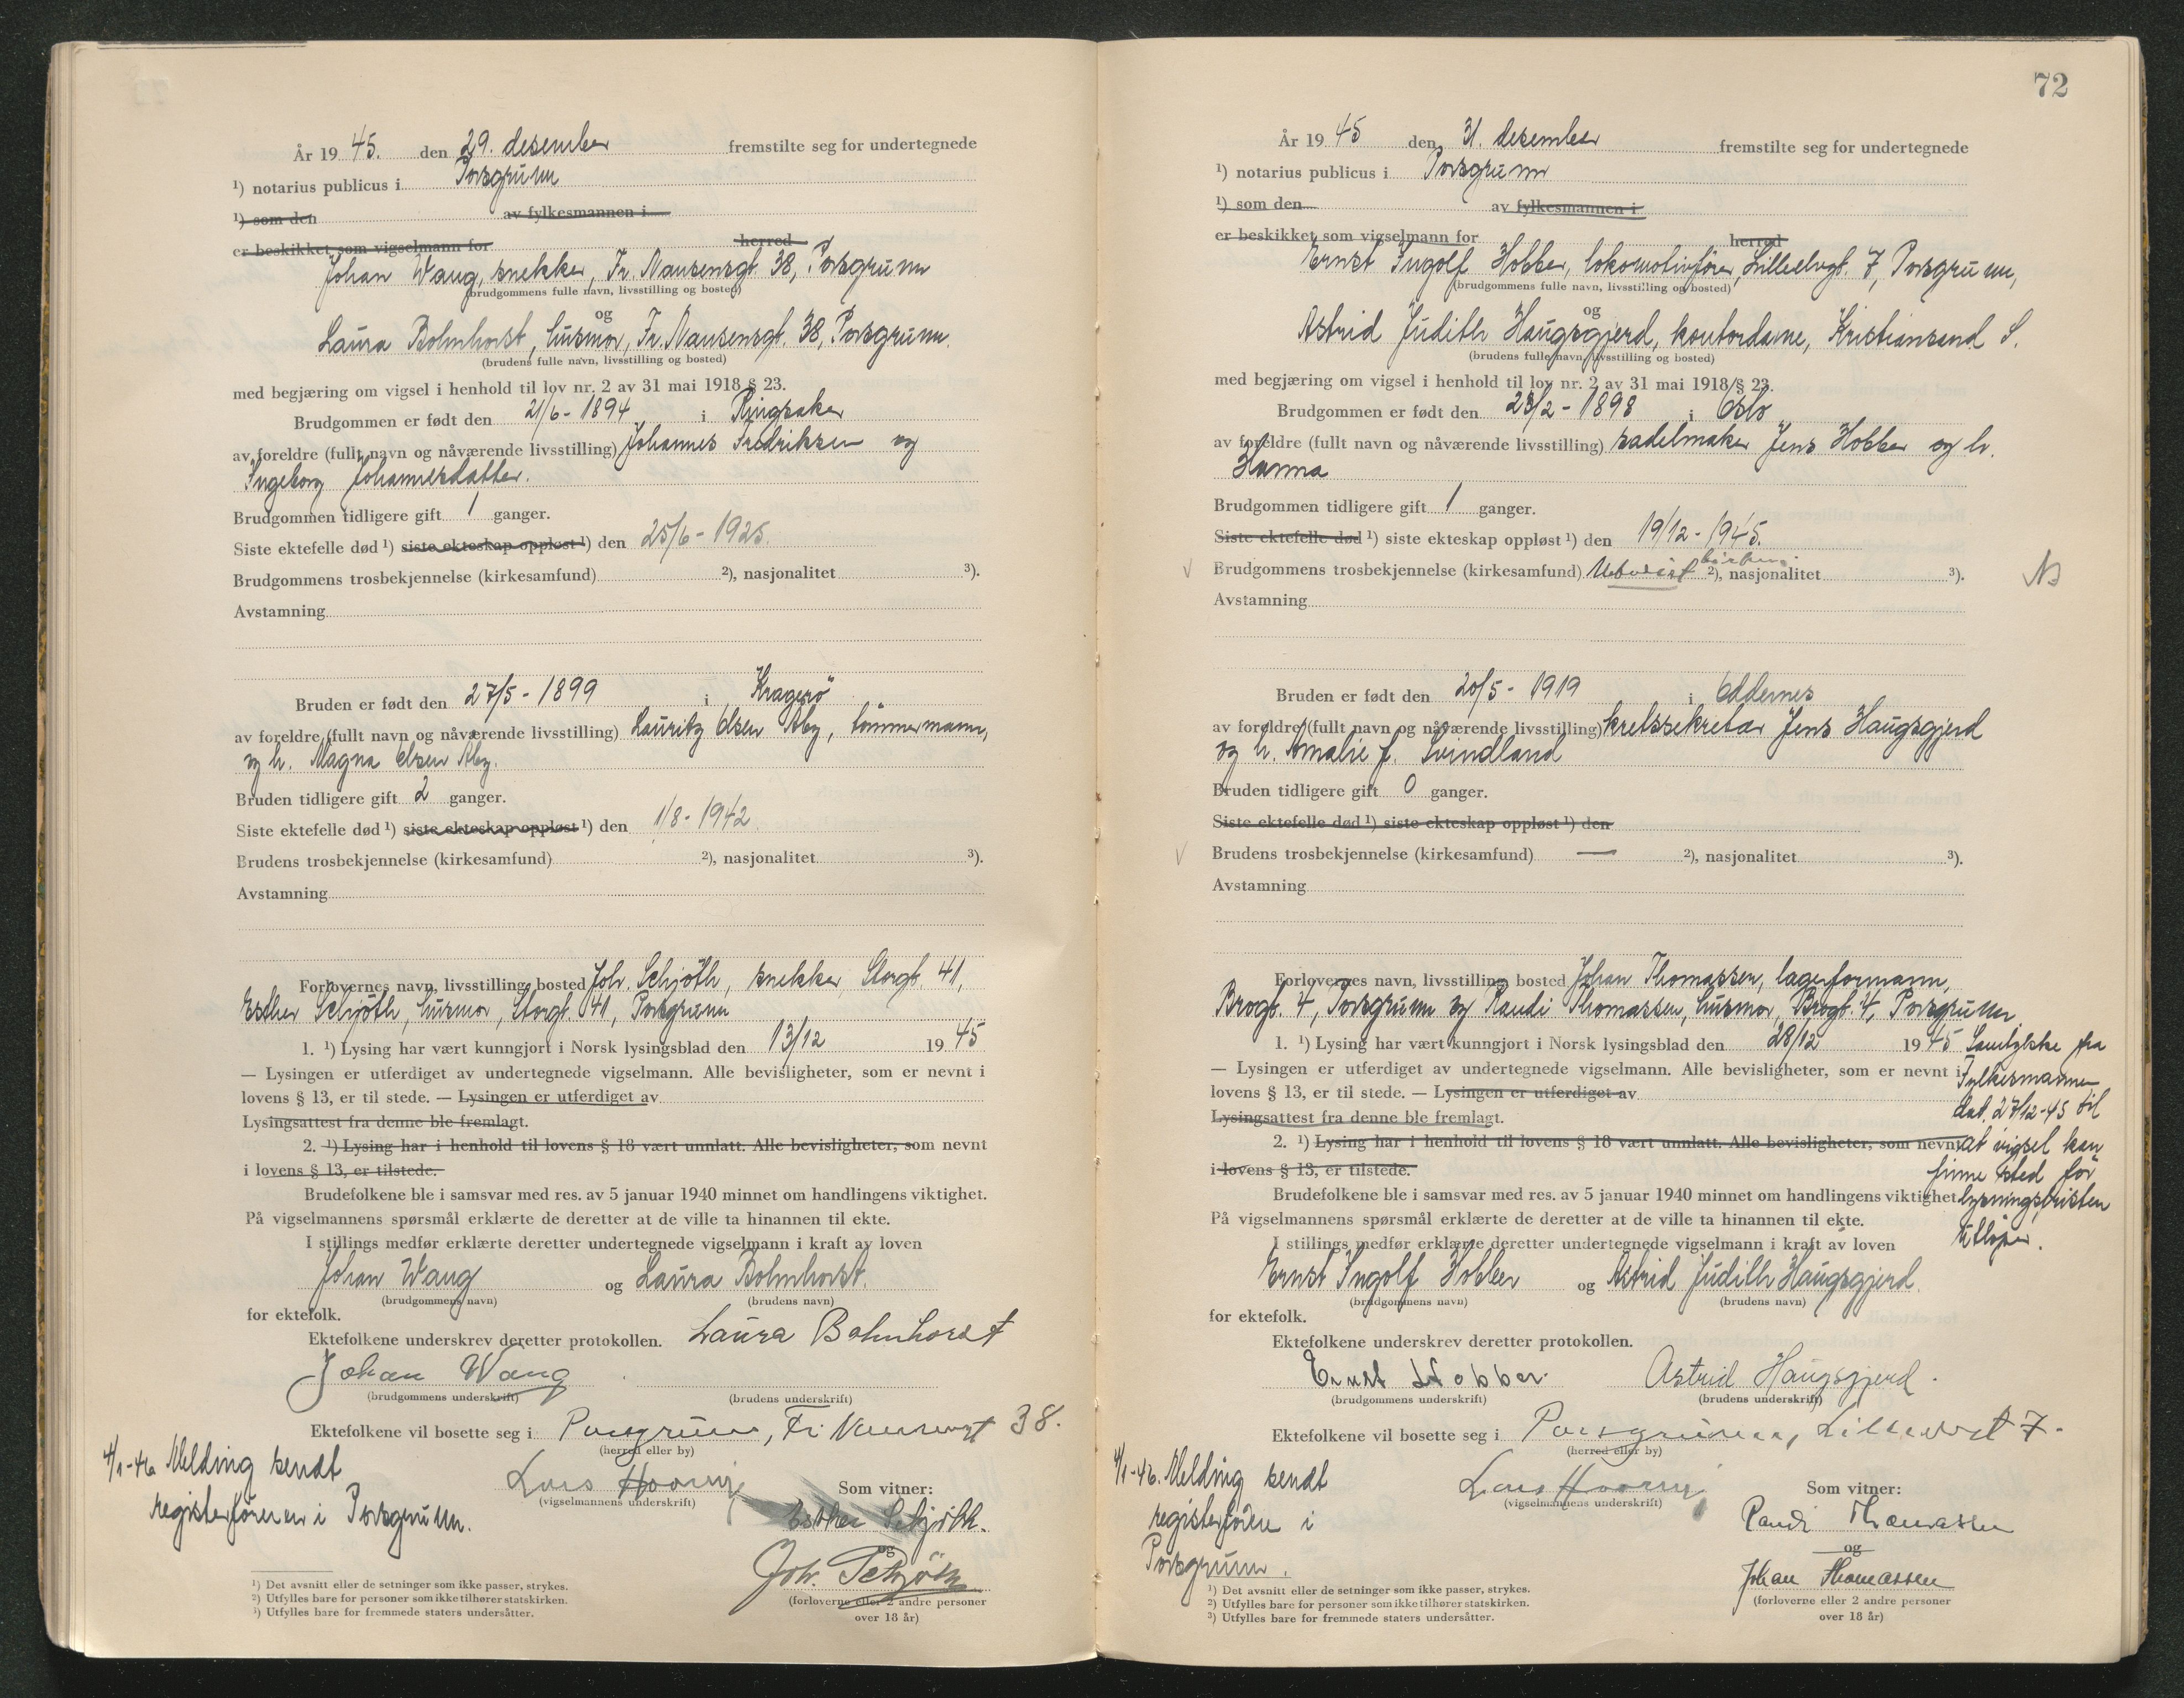 År 19 45. den 29. desember fremstilte seg for undertegnede
¹) notarius publicus i Porsgrunn
¹) som den av fylkesmannen i
er beskikket som vigselmann for herred
Johan Wang, snekker, Fr. Nansensgt. 38, Porsgrunn
(brudgommens fulle navn, livsstilling og bosted)
og
Laura Bolmhorst, husmor, Fr. Nansensgt. 38, Porsgrunn.
(brudens fulle navn, livsstilling og bosted)
med begjæring om vigsel i henhold til lov nr. 2 av 31 mai 1918 § 23.
Brudgommen er født den 21/6 - 1894 i Ringsaker
av foreldre (fullt navn og nåværende livsstilling) Johannes Fredriksen og
Ingeborg Johannesdatter.
Brudgommen tidligere gift 1 ganger.
Siste ektefelle død ¹) siste ekteskap oppløst ¹) den 25/6 - 1925.
Brudgommens trosbekjennelse (kirkesamfund) ²), nasjonalitet ³).
Avstamning
Bruden er født den 27/5 - 1899 i Kragerö
av foreldre (fullt navn og nåværende livsstilling) Lauritz Olsen Aby, tömmermann,
og h. Magna Olsen Aby.
Bruden tidligere gift 2 ganger.
Siste ektefelle død ¹) siste ekteskap oppløst ¹) den 1/8 - 1942.
Brudens trosbekjennelse (kirkesamfund) ²), nasjonalitet ³).
Avstamning
Forlovernes navn, livsstilling, bosted Joh. Schjöth, snekker, Storgt. 41,
Esther Schjöth, husmor, Storgt. 41, Porsgrunn
1. ¹) Lysing har vært kunngjort i Norsk lysingsblad den 13/12 19 45
— Lysingen er utferdiget av undertegnede vigselmann. Alle bevisligheter, som er nevnt i
lovens § 13, er til stede. — Lysingen er utferdiget av
Lysingsattest fra denne ble fremlagt.
2. ¹) Lysing har i henhold til lovens § 18 vært unnlatt. Alle bevisligheter, som nevnt
i lovens § 13, er tilstede.
Brudefolkene ble i samsvar med res. av 5 januar 1940 minnet om handlingens viktighet.
På vigselmannens spørsmål erklærte de deretter at de ville ta hinannen til ekte.
I stillings medfør erklærte deretter undertegnede vigselmann i kraft av loven
Johan Wang og Laura Bolmhorst.
(brudgommens navn) (brudens navn)
for ektefolk.
Ektefolkene underskrev deretter protokollen. Laura Bohnhorst
Johan Wang
(brudgommens underskrift) (brudens underskrift)
Ektefolkene vil bosette seg i Porsgrunn, Fr. Nansensgt 38.
(herred eller by)
4/1-46 Melding sendt
registerföreren i Porsgrunn.
Lars
(vigselmannens underskrift)
Som vitner:
Esther Schjöth.
og
Joh. Schjöth
(forloverne eller 2 andre personer
over 18 år)
¹) Det avsnitt eller de setninger som ikke passer, strykes.
²) Utfylles bare for personer som ikke tilhører statskirken.
³) Utfylles bare for fremmede staters undersåtter.
72
År 19 45 den 31. desember fremstilte seg for undertegnede
¹) notarius publicus i Porsgrunn
¹) som den av fylkesmannen i
er beskikket som vigselmann for herred
Ernst Ingolf Hobber, lokomotivförer, Lilleelvgt. 7, Porsgrunn,
(brudgommens fulle navn, livsstilling og bosted)
og
Astrid Judith Haugsgjerd, kontordame, Kristiansand S.
(brudens fulle navn, livsstilling og bosted)
med begjæring om vigsel i henhold til lov nr. 2 av 31 mai 1918 § 23.
Brudgommen er født den 23/2 - 1898 i Oslo
av foreldre (fullt navn og nåværende livsstilling) sadelmaker Jens Hobber og h.
Hanna
Brudgommen tidligere gift 1 ganger.
Siste ektefelle død ¹) siste ekteskap oppløst ¹) den 19/12 - 1945.
Brudgommens trosbekjennelse (kirkesamfund) ²), nasjonalitet ³).
Avstamning
Bruden er født den 20/5 - 1919 i Oddernes
av foreldre (fullt navn og nåværende livsstilling) kretssekretær Jens Haugsgjerd
og h. Amalie f. Svindland
Bruden tidligere gift 0 ganger.
Siste ektefelle død ¹) siste ekteskap oppløst ¹) den
Brudens trosbekjennelse (kirkesamfund) — ²), nasjonalitet ³).
Avstamning
Forlovernes navn, livsstilling, bosted Johan Thomassen, lagerformann,
Brogt. 4, Porsgrunn og Randi Thomassen, husmor, Brogt. 4, Porsgrunn
1. ¹) Lysing har vært kunngjort i Norsk lysingsblad den 28/12 19 45
— Lysingen er utferdiget av undertegnede vigselmann. Alle bevisligheter, som er nevnt i
lovens § 13, er til stede. — Lysingen er utferdiget av
Lysingsattest fra denne ble fremlagt.
2. ¹) Lysing har i henhold til lovens § 18 vært unnlatt. Alle bevisligheter, som nevnt
i lovens § 13, er tilstede.
Samtykke fra
Fylkesmannen
dat. 27/12-45 til
at vigsel kan
finne sted för
lysningsfristen
utlöper.
Brudefolkene ble i samsvar med res. av 5 januar 1940 minnet om handlingens viktighet.
På vigselmannens spørsmål erklærte de deretter at de ville ta hinannen til ekte.
I stillings medfør erklærte deretter undertegnede vigselmann i kraft av loven
Ernst Ingolf Hobber og Astrid Judith Haugsgjerd.
(brudgommens navn) (brudens navn)
for ektefolk.
Ektefolkene underskrev deretter protokollen.
Ernst Hobber. Astrid Haugsgjerd.
(brudgommens underskrift) (brudens underskrift)
Ektefolkene vil bosette seg i Porsgrunn, Lilleelvgt 7.
(herred eller by)
4/1-46. Melding sendt
registerförer i
Porsgrunn.
Lars
(vigselmannens underskrift)
Som vitner:
Randi Thomassen
og
Johan Thomassen
(forloverne eller 2 andre personer
over 18 år)
¹) Det avsnitt eller de setninger som ikke passer, strykes.
²) Utfylles bare for personer som ikke tilhører statskirken.
³) Utfylles bare for fremmede staters undersåtter.